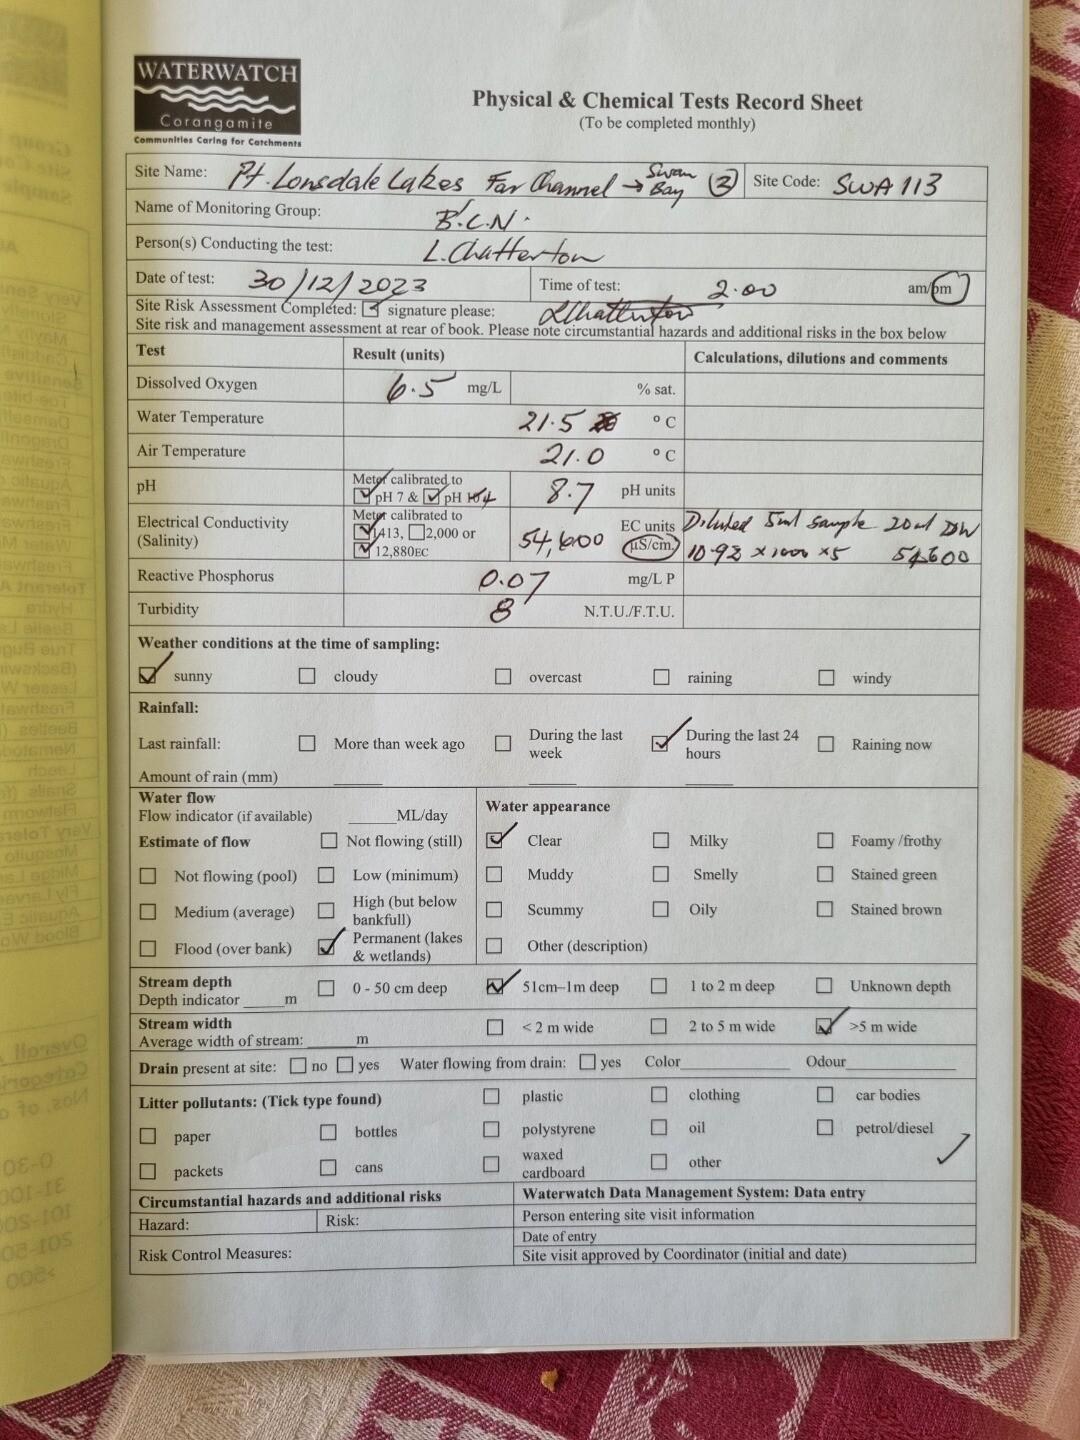 WATERWATCH
Corangamite
Communities Caring for Catchments
Physical & Chemical Tests Record Sheet
(To be completed monthly)
Site Name: Pt. Lonsdale Lakes Far Channel → Swan Bay (2) Site Code: SWA 113
Name of Monitoring Group: B.C.N.
Person(s) Conducting the test: L. Chatterton
Date of test: 30/12/2023 Time of test: 2.00 am/pm
Site Risk Assessment Completed: signature please: LChatterton
Site risk and management assessment at rear of book. Please note circumstantial hazards and additional risks in the box below
Test Result (units) Calculations, dilutions and comments
Dissolved Oxygen 6.5 mg/L % sat.
Water Temperature 21.5 °C
Air Temperature 21.0 °C
pH Meter calibrated to pH 7 & pH 4 8.7 pH units
Electrical Conductivity (Salinity) Meter calibrated to 1413, 2,000 or 12,880EC 54,600 EC units µS/cm. Diluted 5ml sample 20ml DW
10.92 x1000 x5 54600
Reactive Phosphorus 0.07 mg/L P
Turbidity 8 N.T.U./F.T.U.
Weather conditions at the time of sampling:
sunny cloudy overcast raining windy
Rainfall:
Last rainfall: More than week ago During the last week During the last 24 hours Raining now
Amount of rain (mm)
Water flow
Flow indicator (if available) ML/day
Water appearance
Estimate of flow Not flowing (still) Clear Milky Foamy /frothy
Not flowing (pool) Low (minimum) Muddy Smelly Stained green
Medium (average) High (but below bankfull) Scummy Oily Stained brown
Flood (over bank) Permanent (lakes & wetlands) Other (description)
Stream depth
Depth indicator m 0 - 50 cm deep 51cm–1m deep 1 to 2 m deep Unknown depth
Stream width
Average width of stream: m < 2 m wide 2 to 5 m wide >5 m wide
Drain present at site: no yes Water flowing from drain: yes Color Odour
Litter pollutants: (Tick type found) plastic clothing car bodies
paper bottles polystyrene oil petrol/diesel
packets cans waxed cardboard other
Circumstantial hazards and additional risks Waterwatch Data Management System: Data entry
Hazard: Risk: Person entering site visit information
Date of entry
Risk Control Measures: Site visit approved by Coordinator (initial and date)